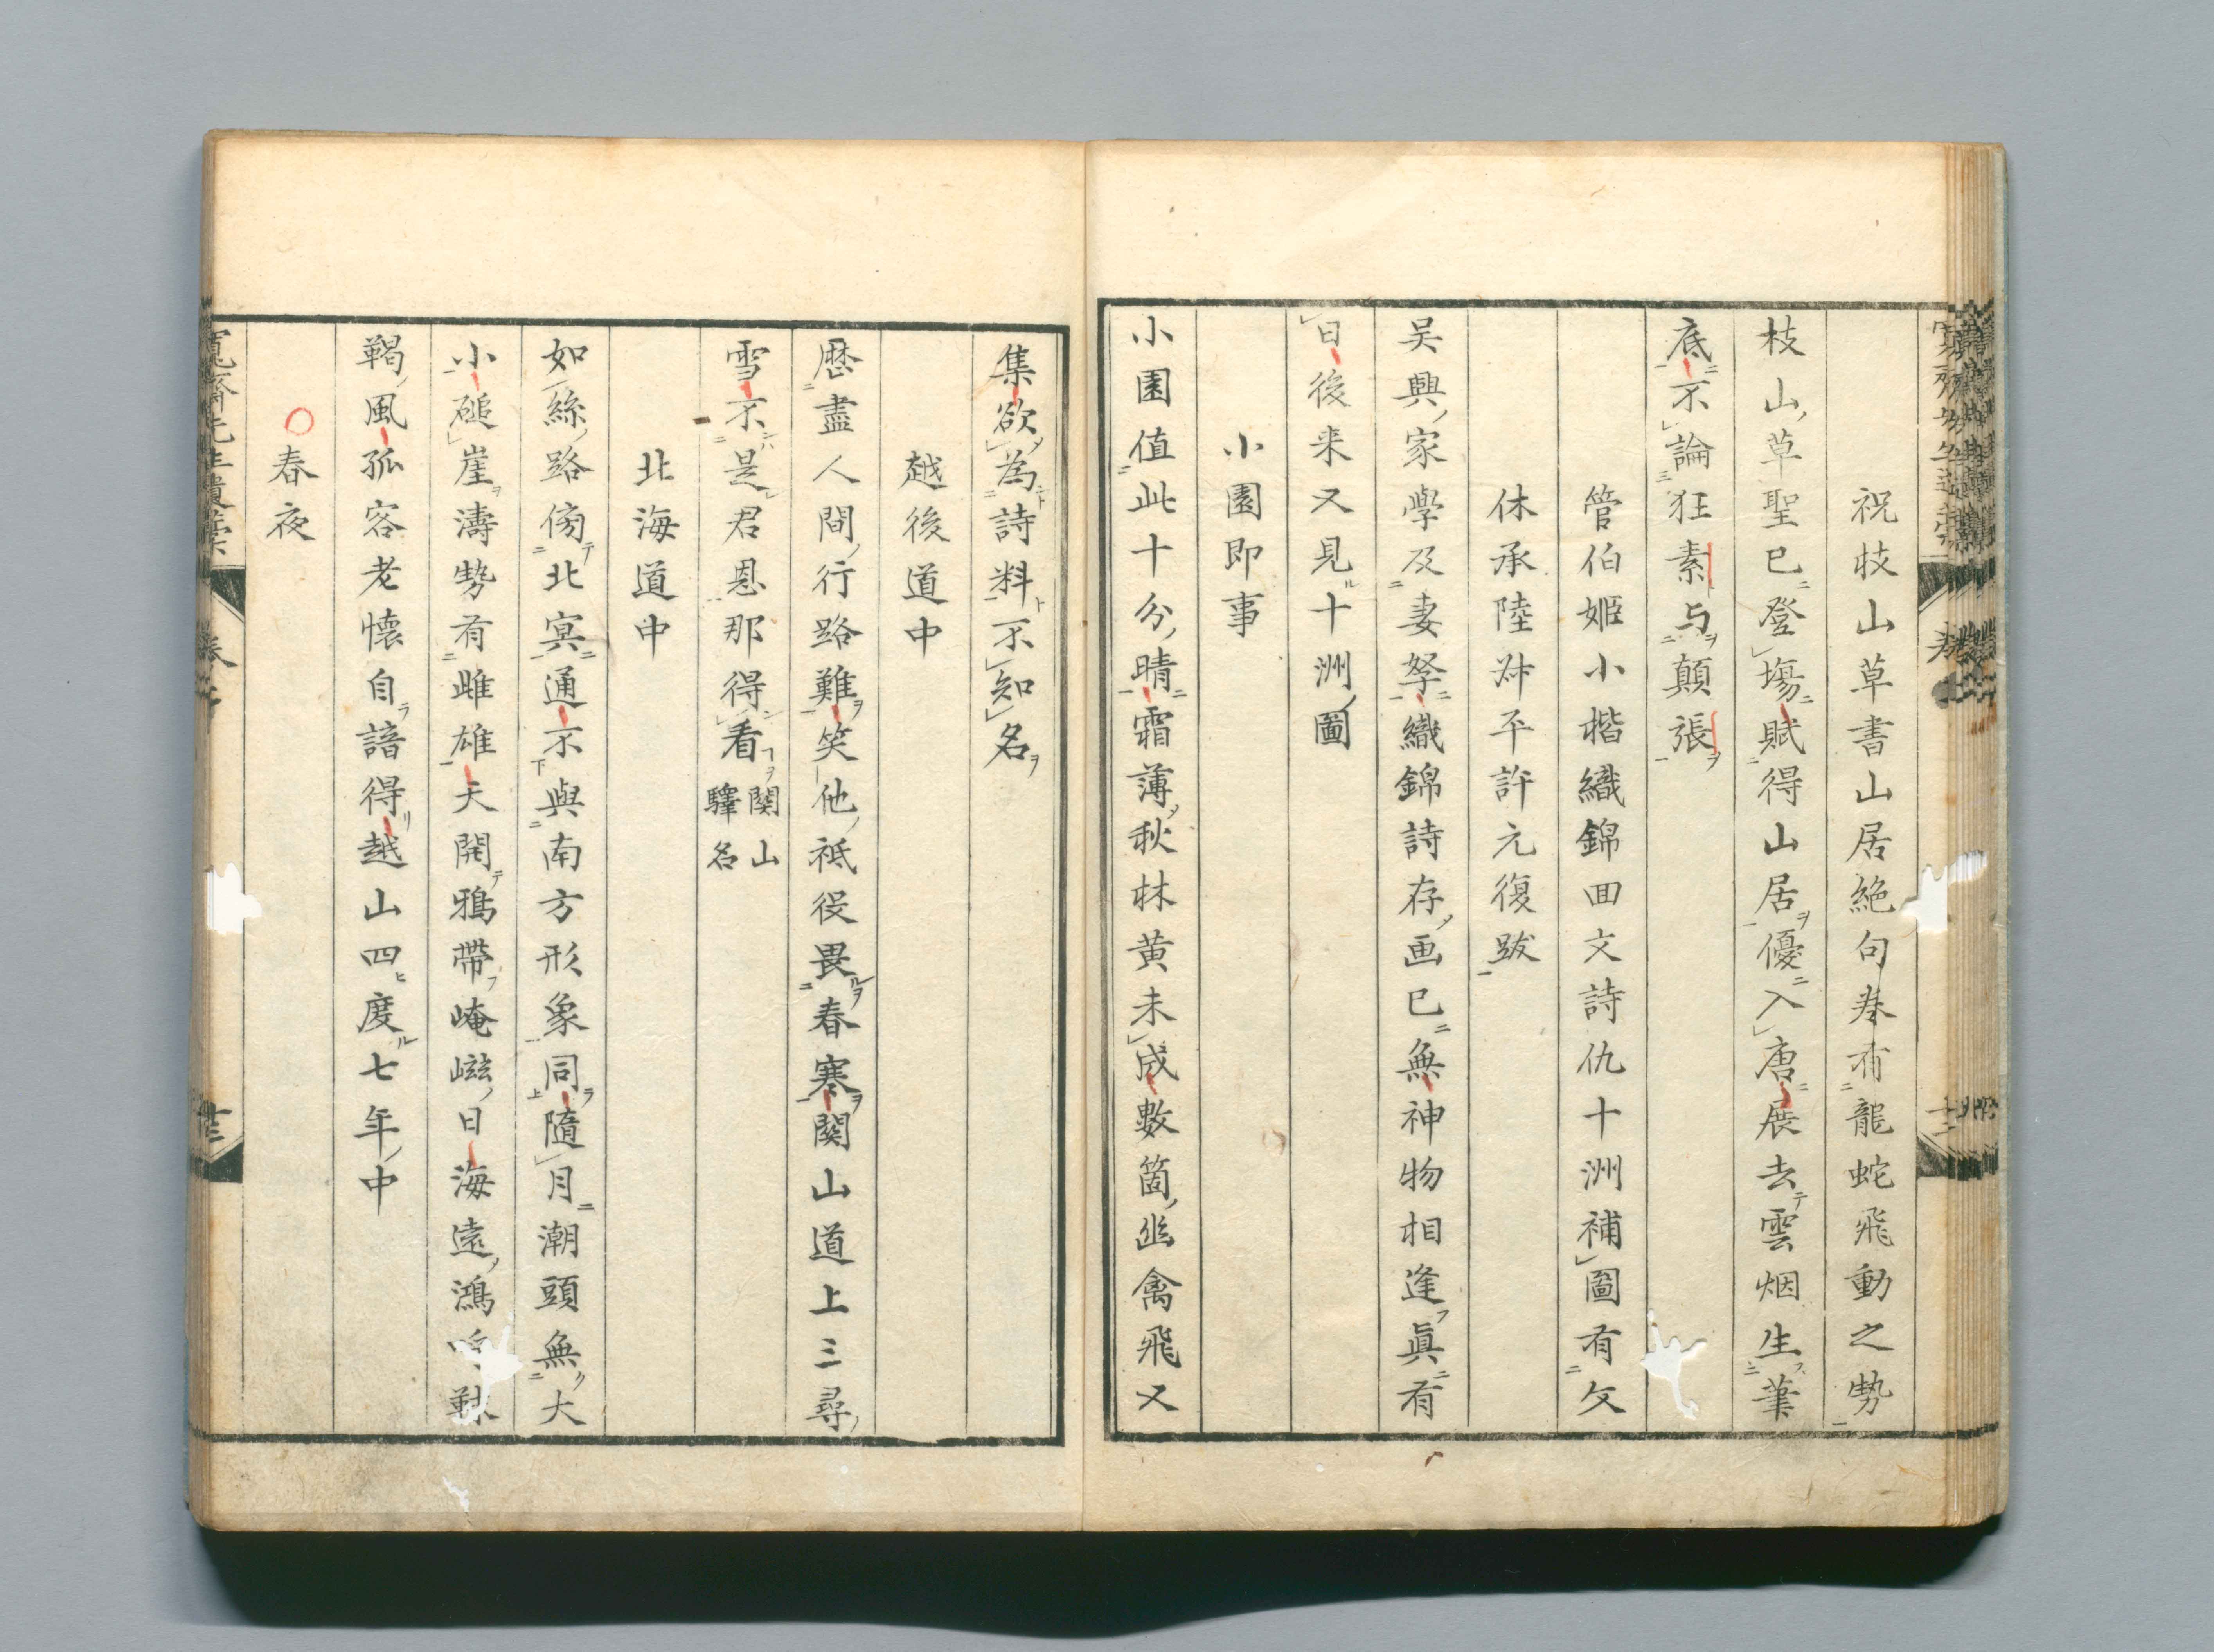 祝枝山草書山居絶句巻有龍蛇飛動之勢
枝山草聖已登場賦得山居優入唐展去雲烟生筆
底不論狂素与顛張
管伯姬小楷織錦回文詩仇十洲補圖有文
休承陸叔平許元復跋
吴興家學及妻孥織錦詩存画已無神物相逢真有
日後来又見十洲圖
小園即事
小園值此十分晴霜薄秋林黄未成數箇幽禽飛又
集欲為詩料不知名
越後道中
歴盡人間行路難笑他祗役畏春寒関山道上三尋
雪不是君恩那得看関山驛名
北海道中
如絲路傍北冥通不與南方形象同隨月潮頭無大
小磓崖濤勢有雌雄天開鴉帶崦嵫日海遠鴻
鞨風孤容老懐自諳得越山四度七年中
春夜
寛齋先生遺藁